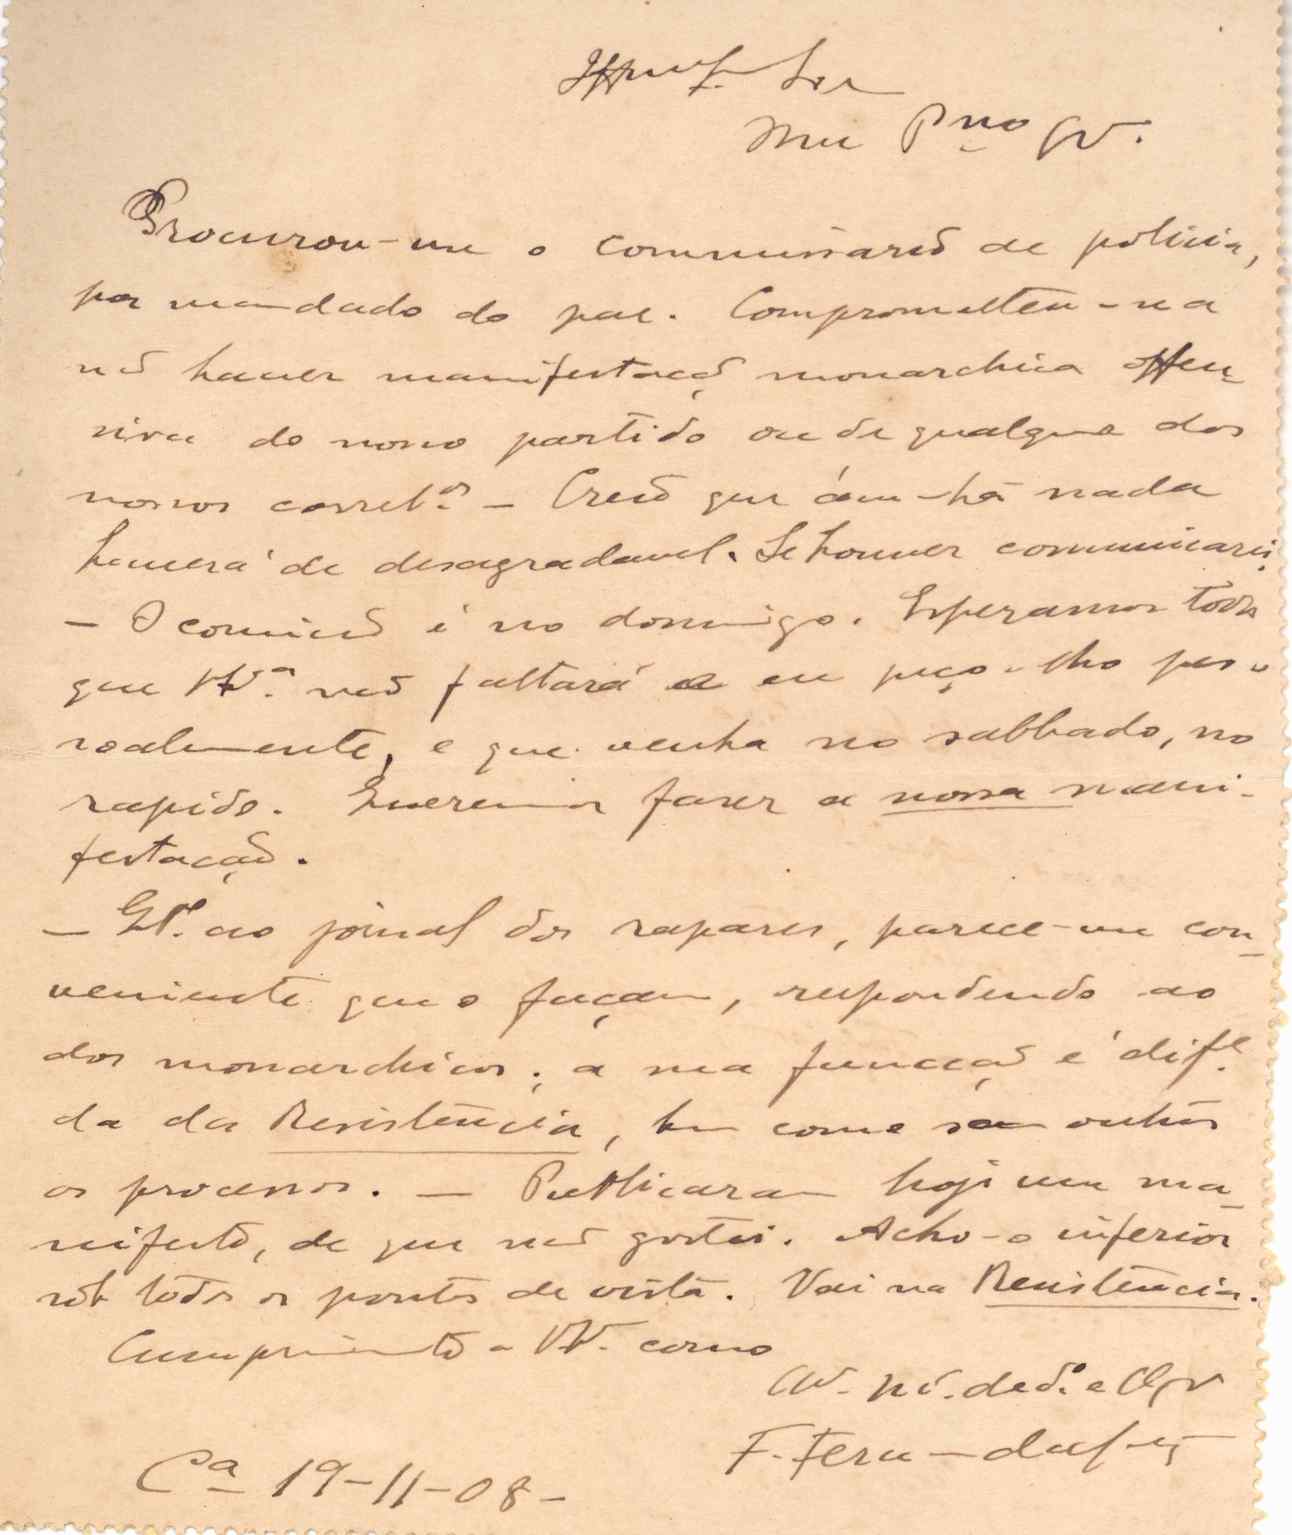 Meu P.no Am.
Procurou-me o commissario de policia,
por mandado do pae. Comprometteu-se a
não haver manifestação monarchica offen-
siva do nosso partido ou de qualquer dos
nossos correl.os - Creio que ámenhã nada
haverá de desagradavel. Se houver communicarei.
- O comicio é no domingo. Esperamos todos
que V.a não faltará e eu peço-lho pes-
soalmente, e que venha no sabbado, no
rapido. Queremos fazer a nossa mani-
festação.
- Q.to ao jornal dos rapazes, parece-me con-
veniente que o façam, respondendo ao
dos monarchicos; a sua funcção é dif.e
da da Resistencia, bem como são outros
os processos. - Publicaram hoje um ma-
nifesto, de que não gostei. Acho-o inferior
sob todos os pontos de vista. Vai na Resistencia.
Cumprimento a V. como
ded.o e
F. Fernandes
C.a 19-11-08-